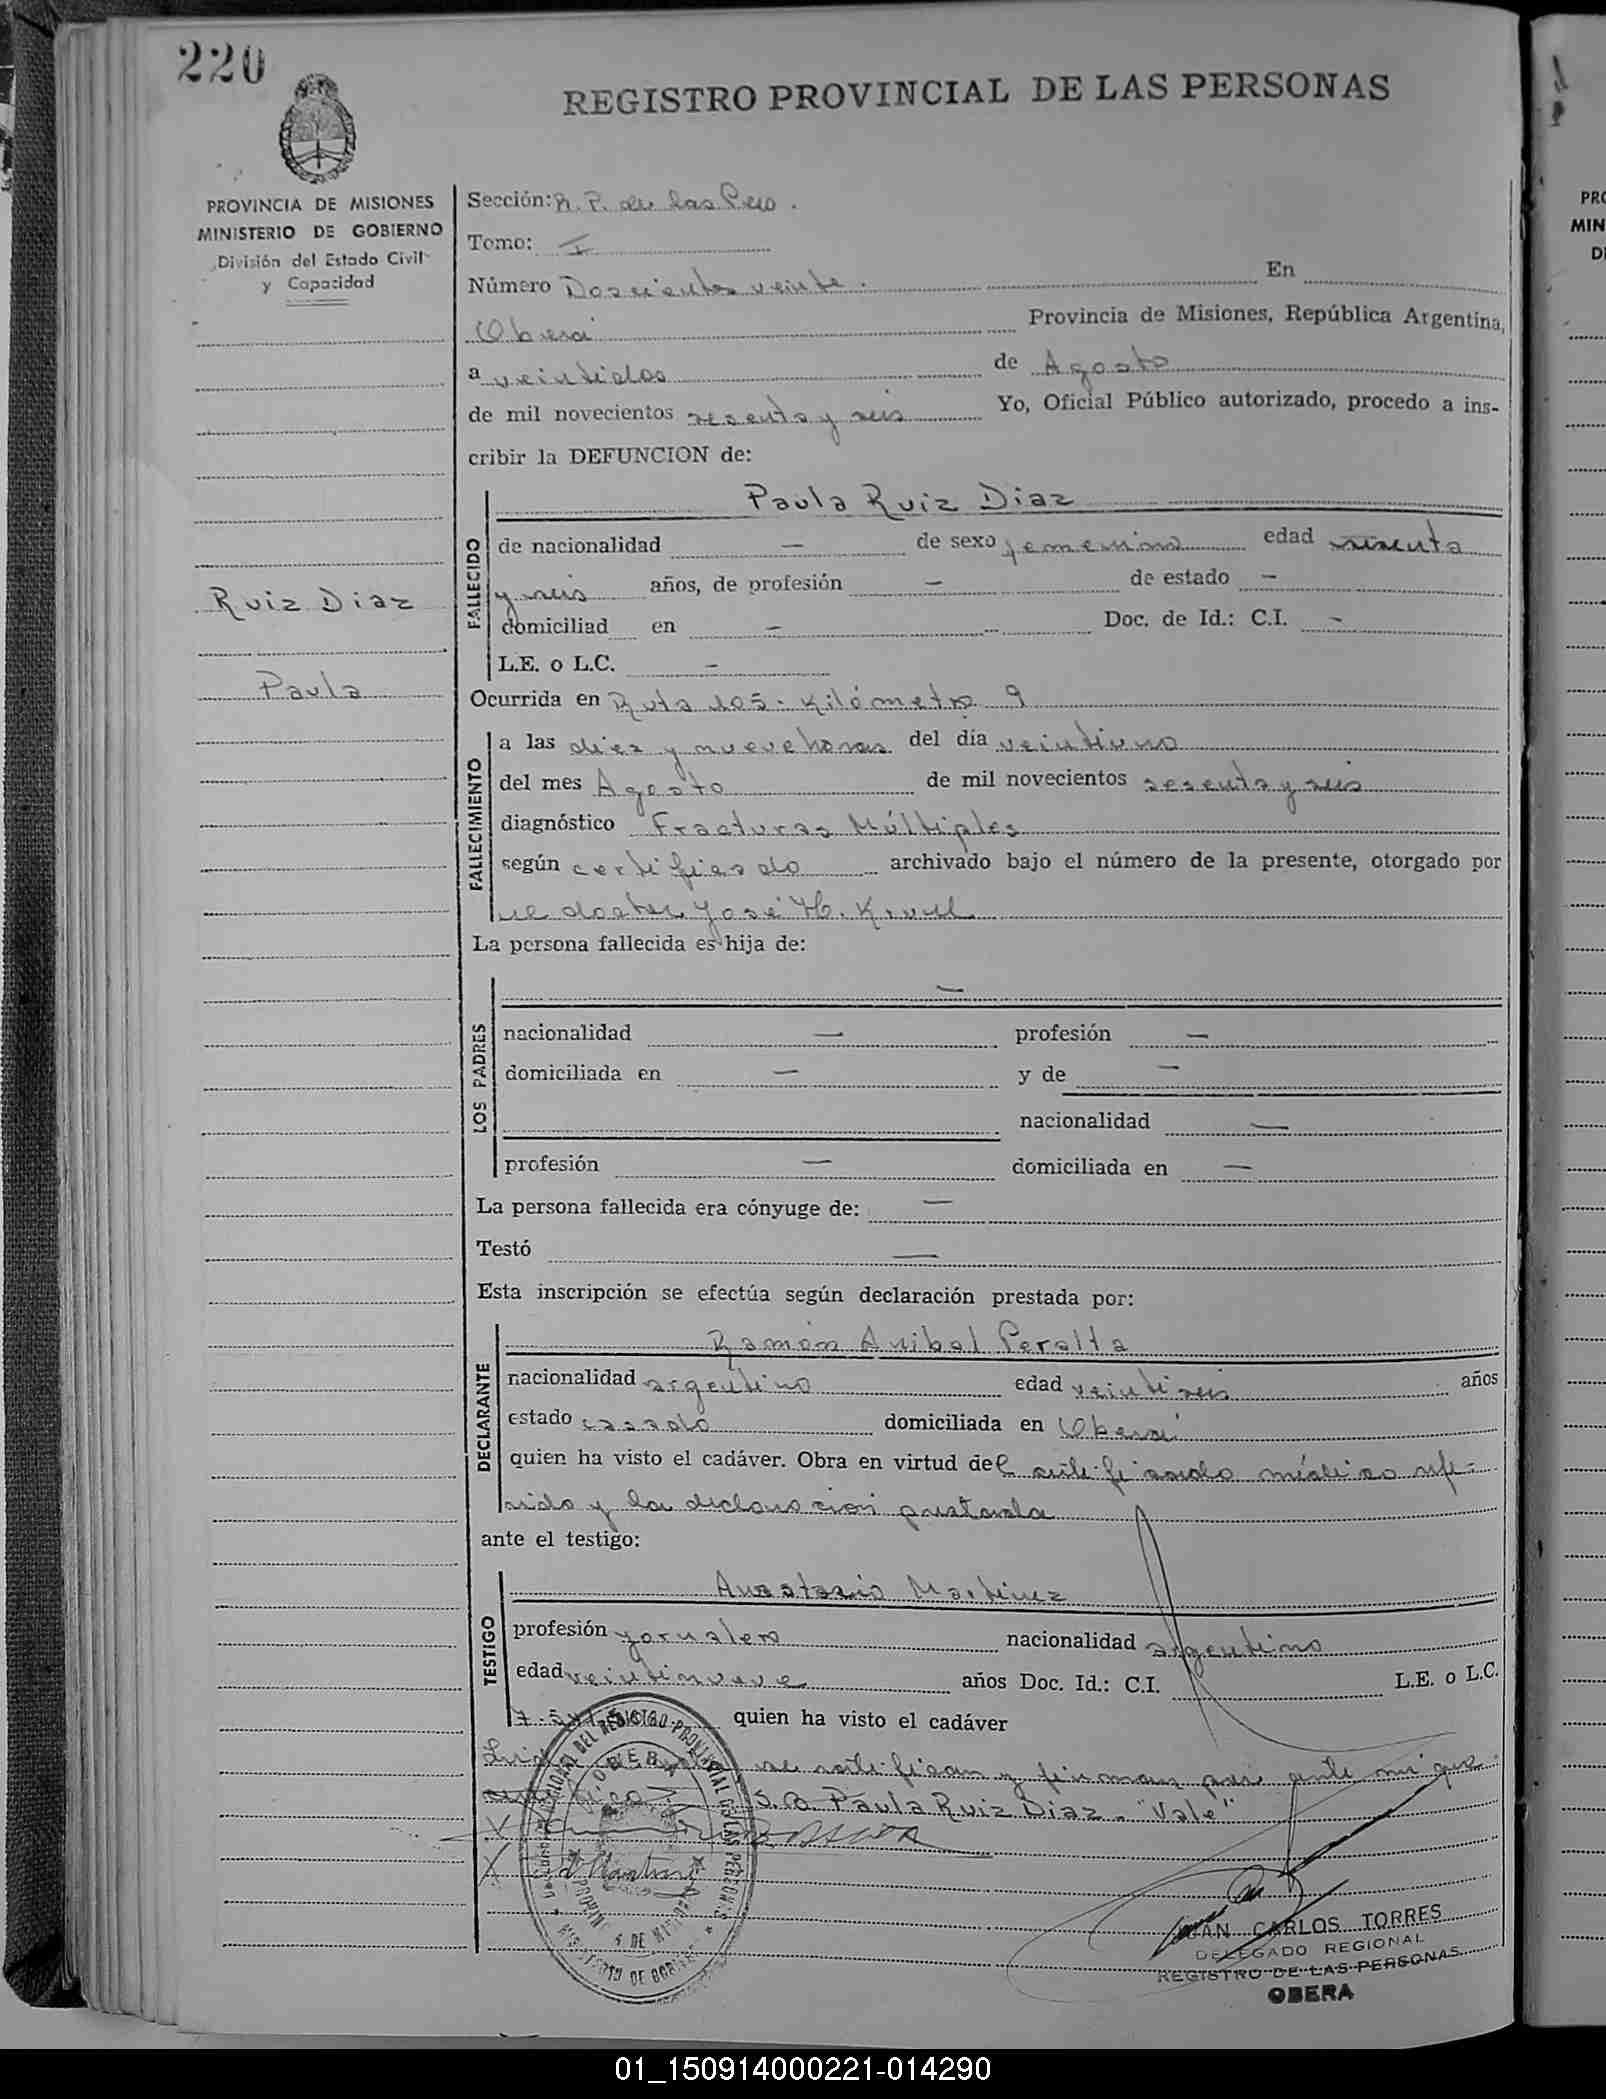 220
REGISTRO PROVINCIAL DE LAS PERSONAS
PROVINCIA DE MISIONES
MINISTERIO DE GOBIERNO
División del Estado Civil
y Capacidad
Ruiz Diaz
Paula
Sección: R. P. de las Pers.
Tomo: I
Número Doscientos veinte. En
Oberá Provincia de Misiones, República Argentina,
a veintidos de Agosto
de mil novecientos sesenta y seis Yo, Oficial Público autorizado, procedo a ins-
cribir la DEFUNCION de:
FALLECIDO
Paula Ruiz Diaz
de nacionalidad — de sexo femenino edad sesenta
y seis años, de profesión — de estado —
domiciliad en — Doc. de Id.: C.I. —
L.E. o L.C. —
Ocurrida en Ruta 105. Kilómetro 9
FALLECIMIENTO
a las diez y nueve horas del día veintiuno
del mes Agosto de mil novecientos sesenta y seis
diagnóstico Fracturas Múltiples
según certificado archivado bajo el número de la presente, otorgado por
el doctor José H.
La persona fallecida es hija de:
—
LOS PADRES
nacionalidad — profesión —
domiciliada en — y de —
nacionalidad —
profesión — domiciliada en —
La persona fallecida era cónyuge de: —
Testó —
Esta inscripción se efectúa según declaración prestada por:
DECLARANTE
Ramón Anibal Peralta
nacionalidad argentino edad veintiseis años
estado casado domiciliada en Oberá
quien ha visto el cadáver. Obra en virtud del certificado médico refe-
rido y la declaración prestada
ante el testigo:
TESTIGO
Anastacio Martinez
profesión jornalero nacionalidad argentino
edad veintinueve años Doc. Id.: C.I. L.E. o L.C.
quien ha visto el cadáver
se ratifican y firman por ante mi que
S.B. Paula Ruiz Diaz. "Vale"
X
X
OBERA
MINISTERIO DE GOBIERNO
JUAN CARLOS TORRES
DELEGADO REGIONAL
REGISTRO DE LAS PERSONAS
OBERA
PRO
MIN
D
01_150914000221-014290